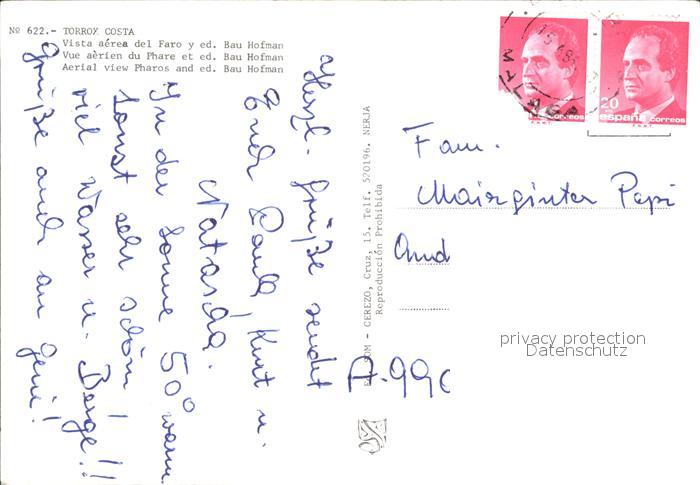 Nº 622.- TORROX COSTA
Vista aérea del Faro y ed. Bau Hofman
Vue aèrien du Phare et ed. Bau Hofman
Aerial view Pharos and ed. Bau Hofman
Herzl. Grüße sendet
Euch Paula, Kurt u.
Natascha.
In der Sonne 50° warm
sonst sehr schön!
viel Wasser u. Berge!!
Grüße auch an Gerti!
CEREZO, Cruz, 15. Telf. 520196. NERJA
Reproducción Prohibida
MALAGA
20
españa correos
F.N.M.T.
correos
F.N.M.T.
Fam.
Mairginter Pepi
And
A-990
privacy protection
Datenschutz